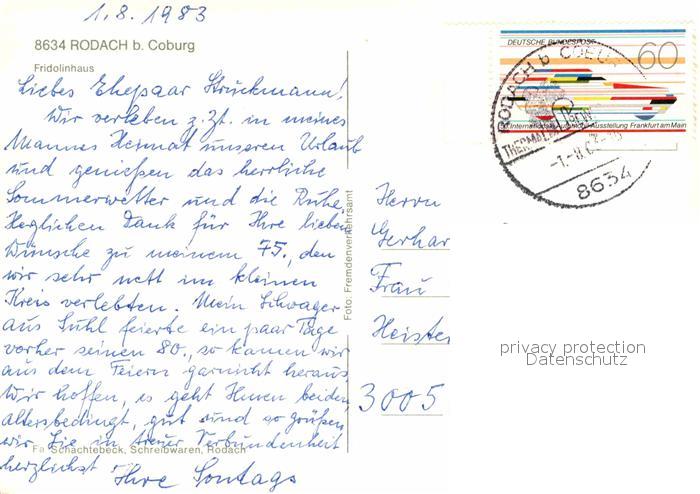 1.8.1983
8634 RODACH b. Coburg
Fridolinhaus
Liebes Ehepaar Strückmann!
Wir verleben z. Zt. in meines
Mannes Heimat unseren Urlaub
und genießen das herrliche
Sommerwetter und die Ruhe
Herzlichen Dank für Ihre lieben
Wünsche zu meinem 75., den
wir sehr nett im kleinen
Kreis verlebten. Mein Schwager
aus Suhl feierte ein paar Tage
vorher seinen 80., so kamen wir
aus dem Feiern garnicht heraus.
Wir hoffen, es geht Ihnen beiden,
altersbedingt, gut und so grüßen
wir Sie in treuer Verbundenheit
herzlichst Ihre Sontags
Fa. Schachtebeck, Schreibwaren, Rodach
Foto: Fremdenverkehrsamt
DEUTSCHE BUNDESPOST
60
Internationale Ausstellung Frankfurt am Main
RODACH b COBURG
THERMAL
8634
Herrn
Gerhar
Frau
Heister
3005
privacy protection
Datenschutz